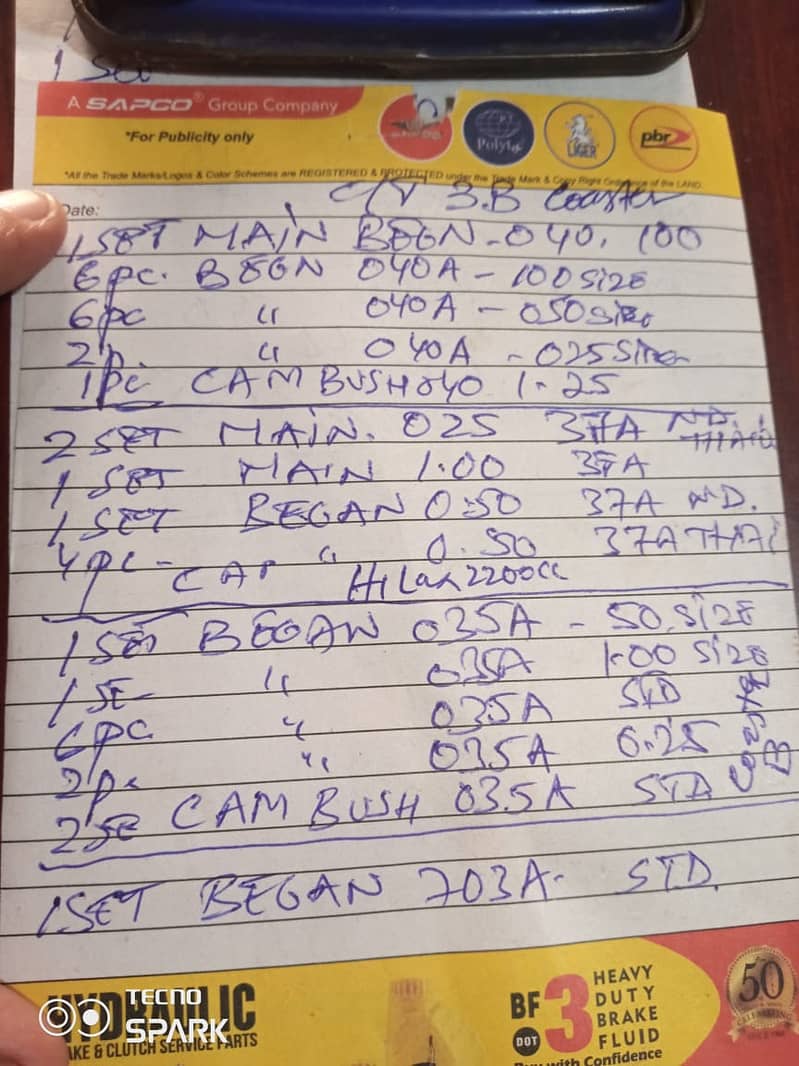 1 Set
A SAPCO® Group Company
*For Publicity only
Polyfa
LIGER
pbr
*All the Trade Marks/Logos & Color Schemes are REGISTERED & PROTECTED under the Trade Mark & Copy Right Ordinance of the LAND.
3.B Coaster
Date:
1 SET MAIN BEGN - 040. 100
6 pc. BEGN 040A - 100 SIZE
6 pc " 040A - 050 size
2 p. " 040A - 025
1 Pc CAM BUSH 040 1.25
2 SET MAIN. 025 37A ND.
1 SET MAIN 1.00 37A
1 SET BEGAN 0.50 37A ND.
4 pc - " 0.50 37A THAI
CAP HiLax 2200cc
1 SET BEGAN 035A - 50. SIZE
1 SE " 035A 1.00 SIZE
6 pc " 035A STD
2 pc " 035A 0.25
Coaster B
2 SE CAM BUSH 035A STD
1 SET BEGAN 703A - STD.
HYDRAULIC
BRAKE & CLUTCH SERVICE PARTS
BF 3
DOT
HEAVY
DUTY
BRAKE
FLUID
Buy with Confidence
50
CELEBRATING
TECNO
SPARK